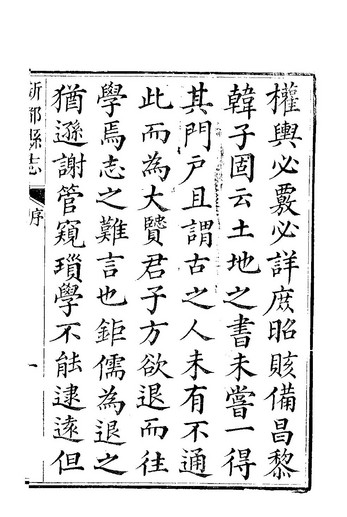 權輿必覈必詳庶昭賅備昌黎
韓子固云土地之書未嘗一得
其門戶且謂古之人未有不通
此而為大賢君子方欲退而往
學焉志之難言也鉅儒為退之
猶遜謝管窺瑣學不能逮遠但
新都縣志
序
一